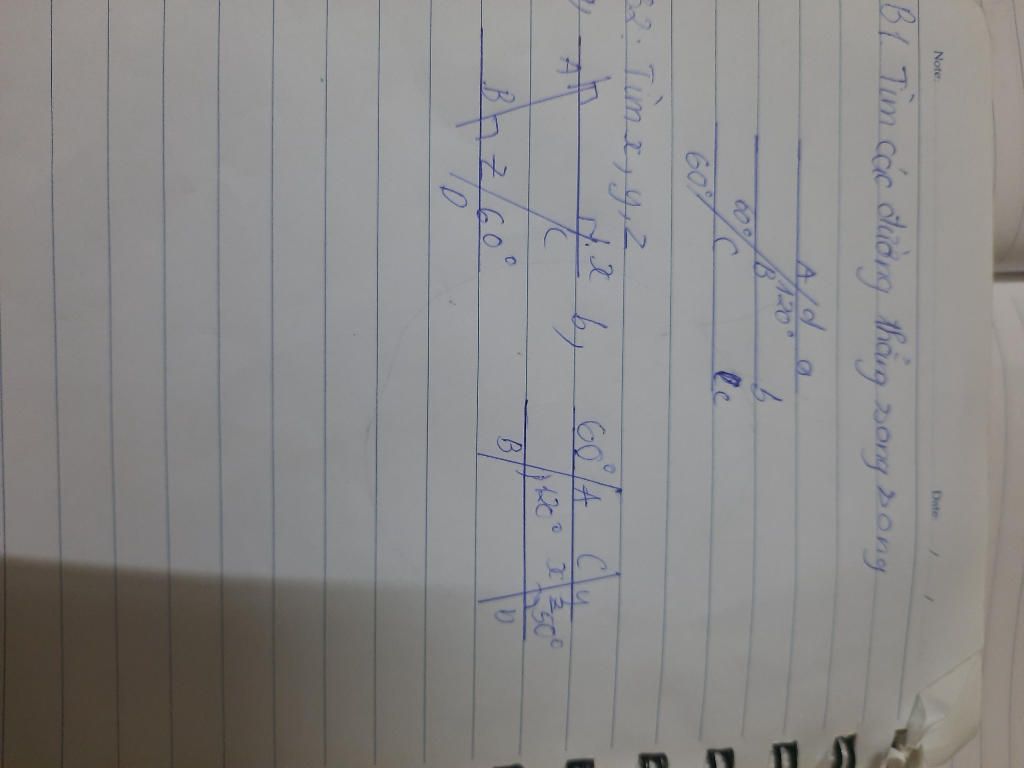 Note:
Date: / /
B1. Tìm các đường thẳng song song
A d a
120°
60° B b
60° C c
B2. Tìm x, y, z
A x b, 60° A C y
C B 120° x z 50°
B z 60° D
D